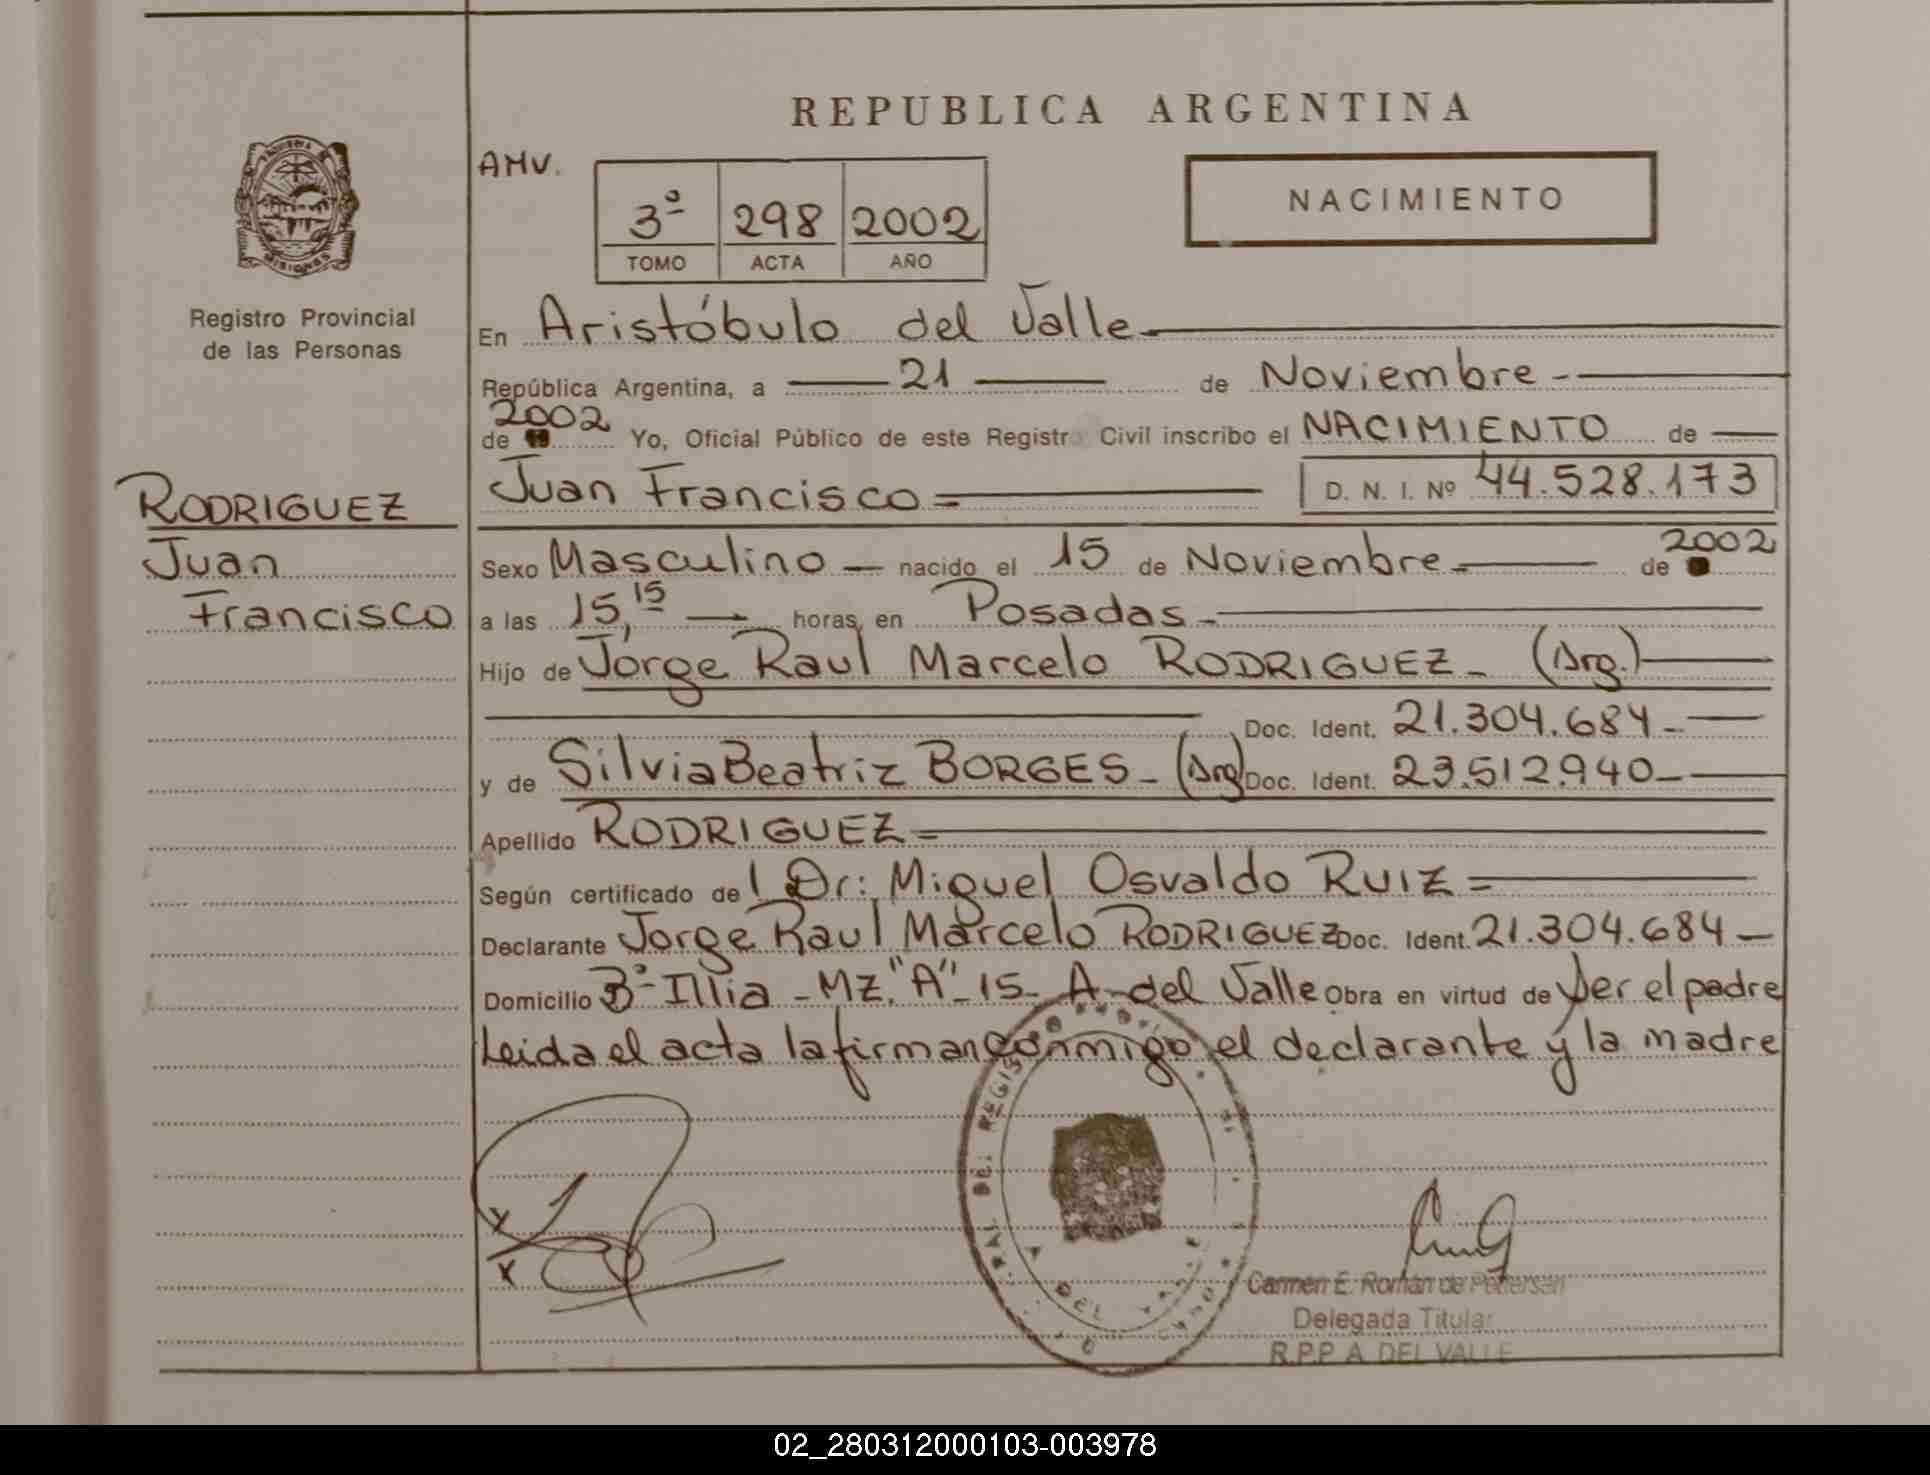 REPUBLICA ARGENTINA
AMV.
3º 298 2002
TOMO ACTA AÑO
NACIMIENTO
MISIONES
Registro Provincial
de las Personas
En Aristóbulo del Valle
República Argentina, a 21 de Noviembre
2002
de 19 Yo, Oficial Público de este Registro Civil inscribo el NACIMIENTO de
RODRIGUEZ
Juan
Francisco
Juan Francisco = D. N. I. Nº 44.528.173
Sexo Masculino — nacido el 15 de Noviembre de 2002
a las 15,15 horas, en Posadas
Hijo de Jorge Raul Marcelo RODRIGUEZ - (Arg.)
Doc. Ident. 21.304.684
y de Silvia Beatriz BORGES - (Arg) Doc. Ident. 23.512.940
Apellido RODRIGUEZ =
Según certificado del Dr: Miguel Osvaldo RUIZ =
Declarante Jorge Raul Marcelo RODRIGUEZ Doc. Ident. 21.304.684
Domicilio Bº Illia - MZ. "A" - 15 - A. del Valle Obra en virtud de Ser el padre
Leida el acta la firman conmigo el declarante y la madre
X
X
DEL
Carmen E. Román de Pettersen
Delegada Titular
R.P.P. A. DEL VALLE
02_280312000103-003978